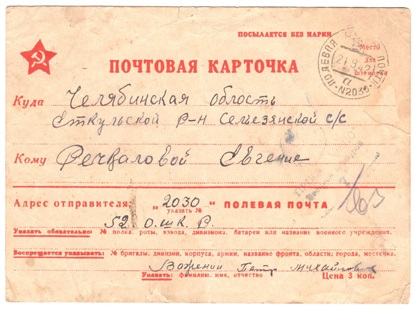 ПОСЫЛАЕТСЯ БЕЗ МАРКИ
Место
для
ПОЛЕВАЯ
ПОЧТОВАЯ КАРТОЧКА
Куда Челябинская область
Еткульской р-н Селезянской с/с
Кому Евгение
Адрес отправителя: "2030 " ПОЛЕВАЯ ПОЧТА
указать №
52 О.
Указать обязательно: № полка, роты, взвода, дивизиона, батареи или название военного учреждения.
Воспрещается указывать: № бригады, дивизии, корпуса, армии, название фронта, области, города, местечка.
Указать: фамилию, имя, отчество Цена 3 коп.